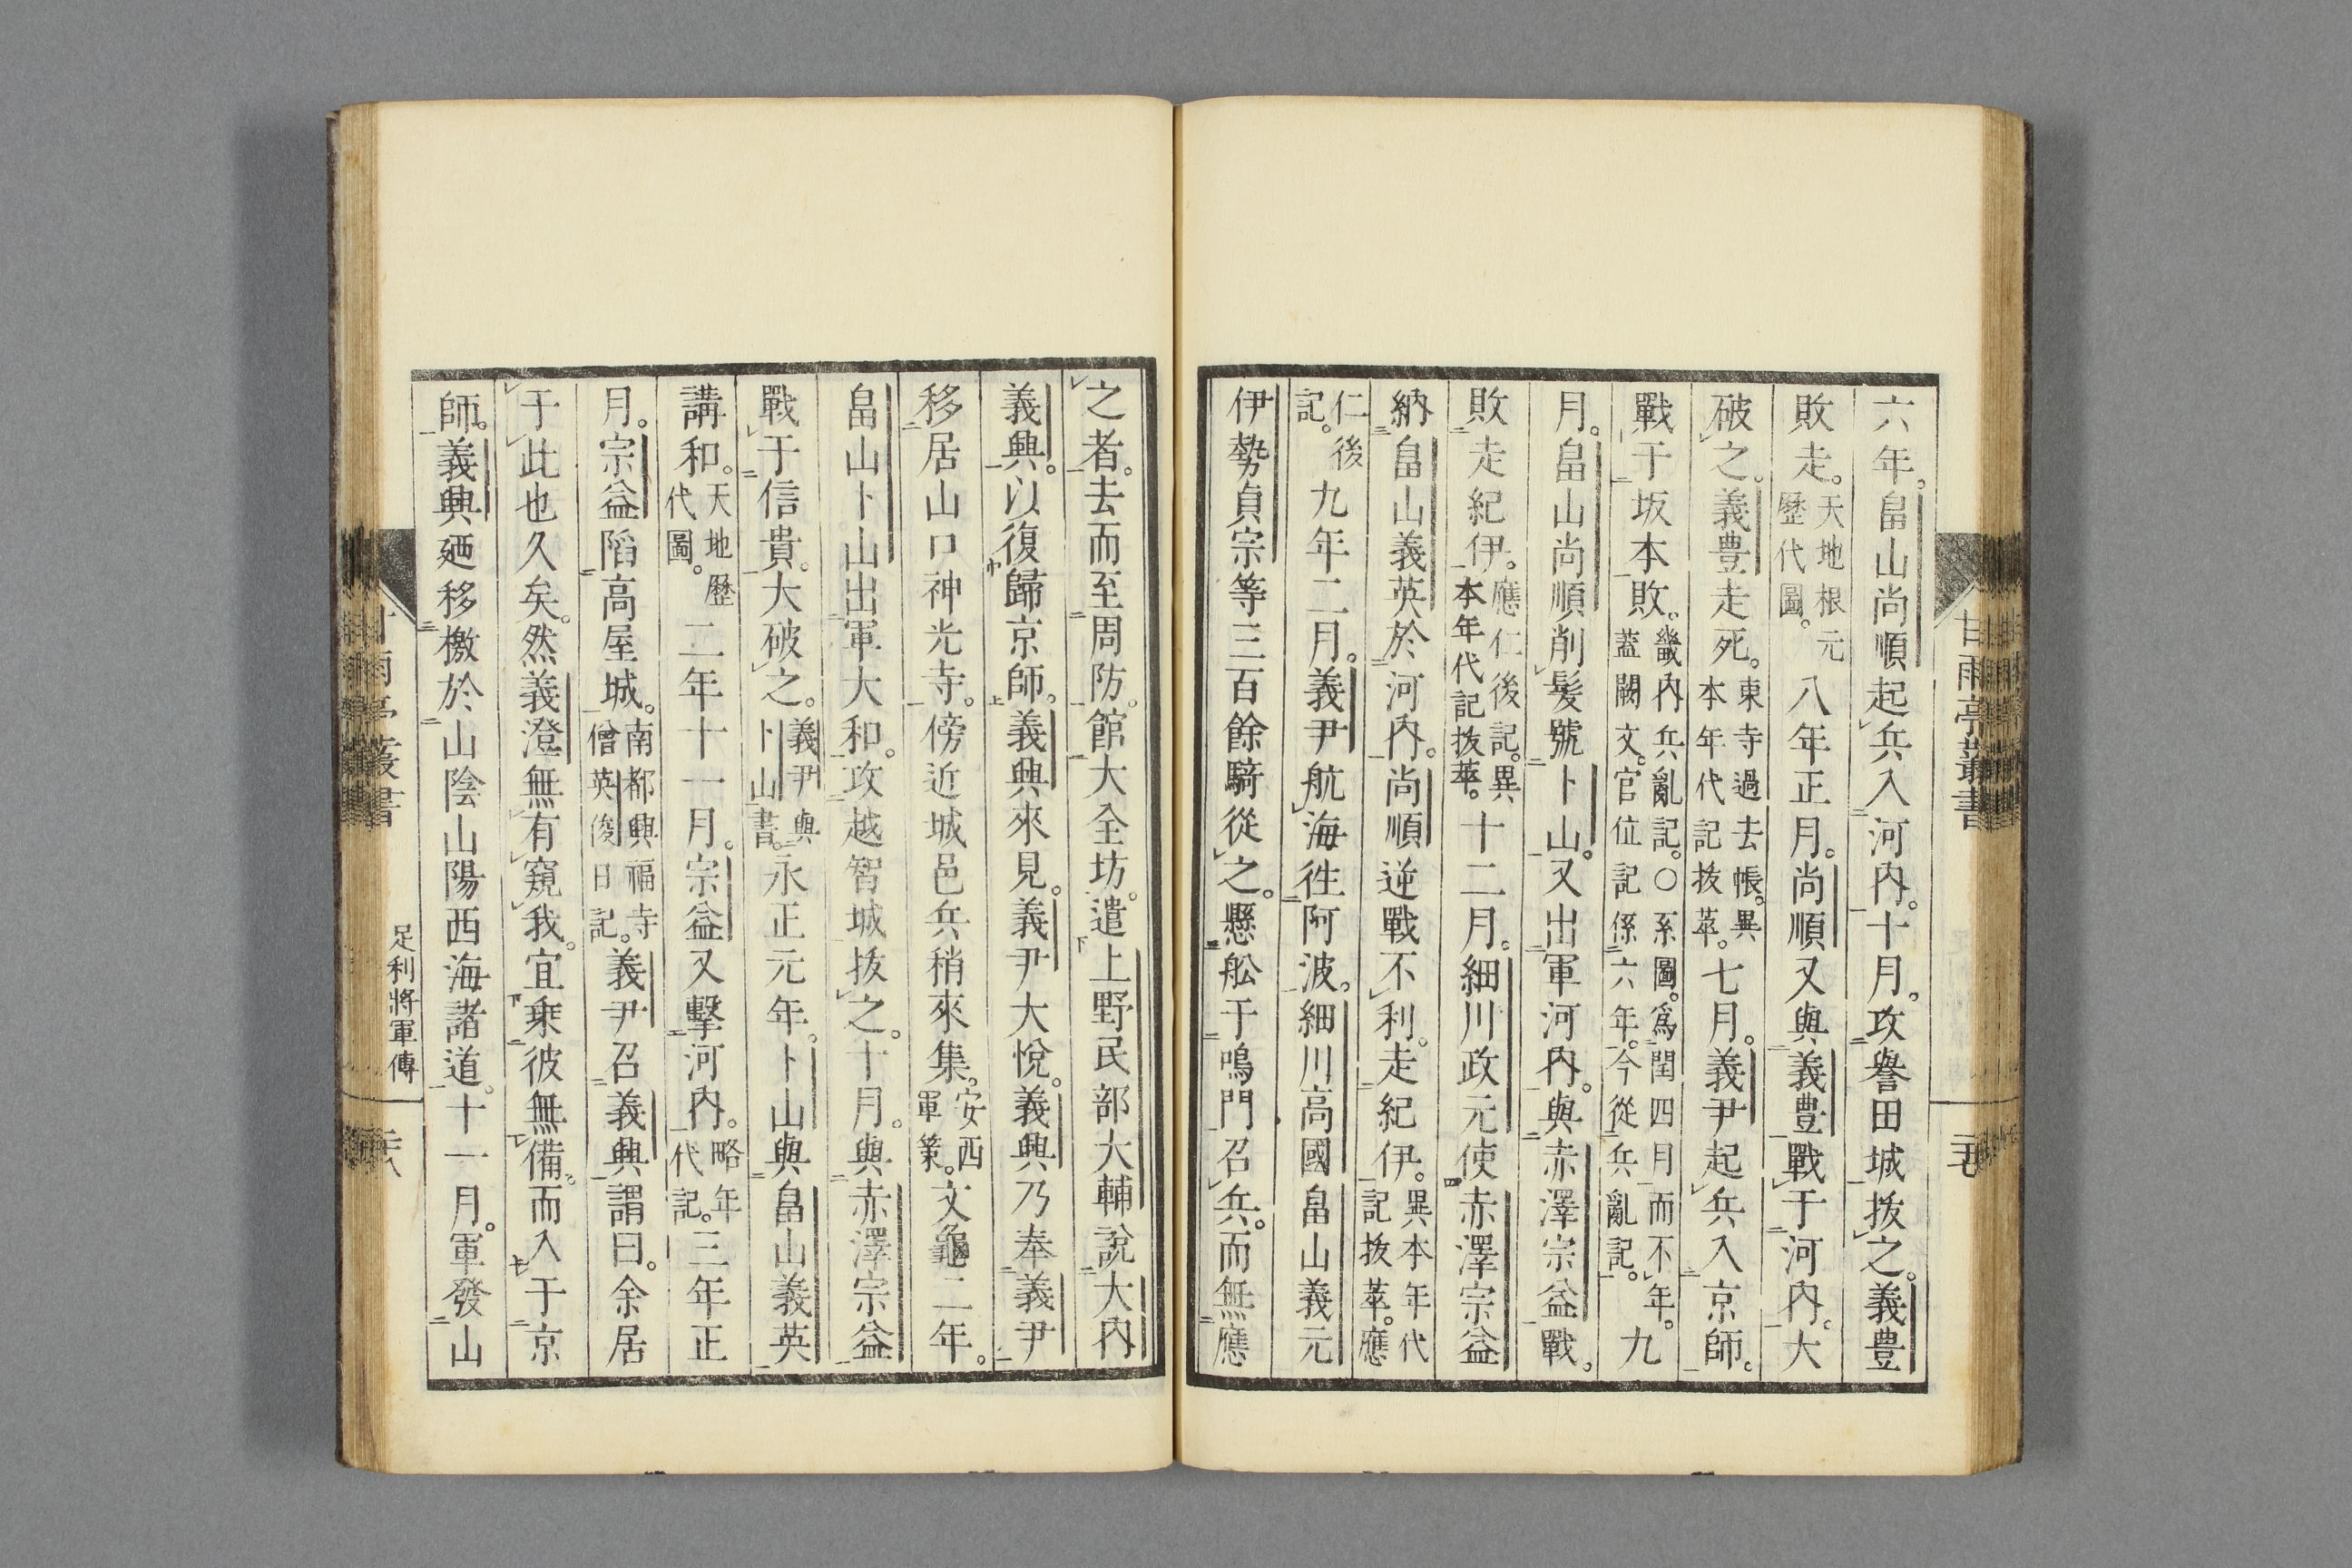 六年。畠山尚順起兵入河内。十月。攻譽田城拔之。義豊
敗走。天地根元歷代圖。八年正月。尚順又與義豊戰于河内。大
破之。義豊走死。東寺過去帳。異本年代記拔萃。七月。義尹起兵入京師。
戰于坂本敗。畿内兵亂記。○系圖。爲閏四月而不年。蓋闕文。官位記係六年。今從兵亂記。九
月。畠山尚順削髮號卜山。又出軍河内。與赤澤宗益戰。
敗走紀伊。應仁後記。異本年代記拔萃。十二月。細川政元使赤澤宗益
納畠山義英於河内。尚順逆戰不利。走紀伊。異本年代記拔萃。應
仁後記。九年二月。義尹航海徃阿波。細川高國畠山義元
伊勢貞宗等三百餘騎從之。懸舩于鳴門召兵。而無應
之者。去而至周防。館大全坊。遣上野民部大輔說大内
義興。以復歸京師。義興來見。義尹大悅。義興乃奉義尹
移居山口神光寺。傍近城邑兵稍來集。安西軍策。文龜二年。
畠山卜山出軍大和。攻越智城拔之。十月。與赤澤宗益
戰于信貴。大破之。義尹與卜山書。永正元年。卜山與畠山義英
講和。天地歷代圖。二年十一月。宗益又擊河内。略年代記。三年正
月。宗益陷高屋城。南都興福寺僧英俊日記。義尹召義興謂曰。余居
于此也久矣。然義澄無有窺我。宜乘彼無備。而入于京
師。義興廼移檄於山陰山陽西海諸道。十一月。軍發山
甘雨亭叢書
足利將軍傳